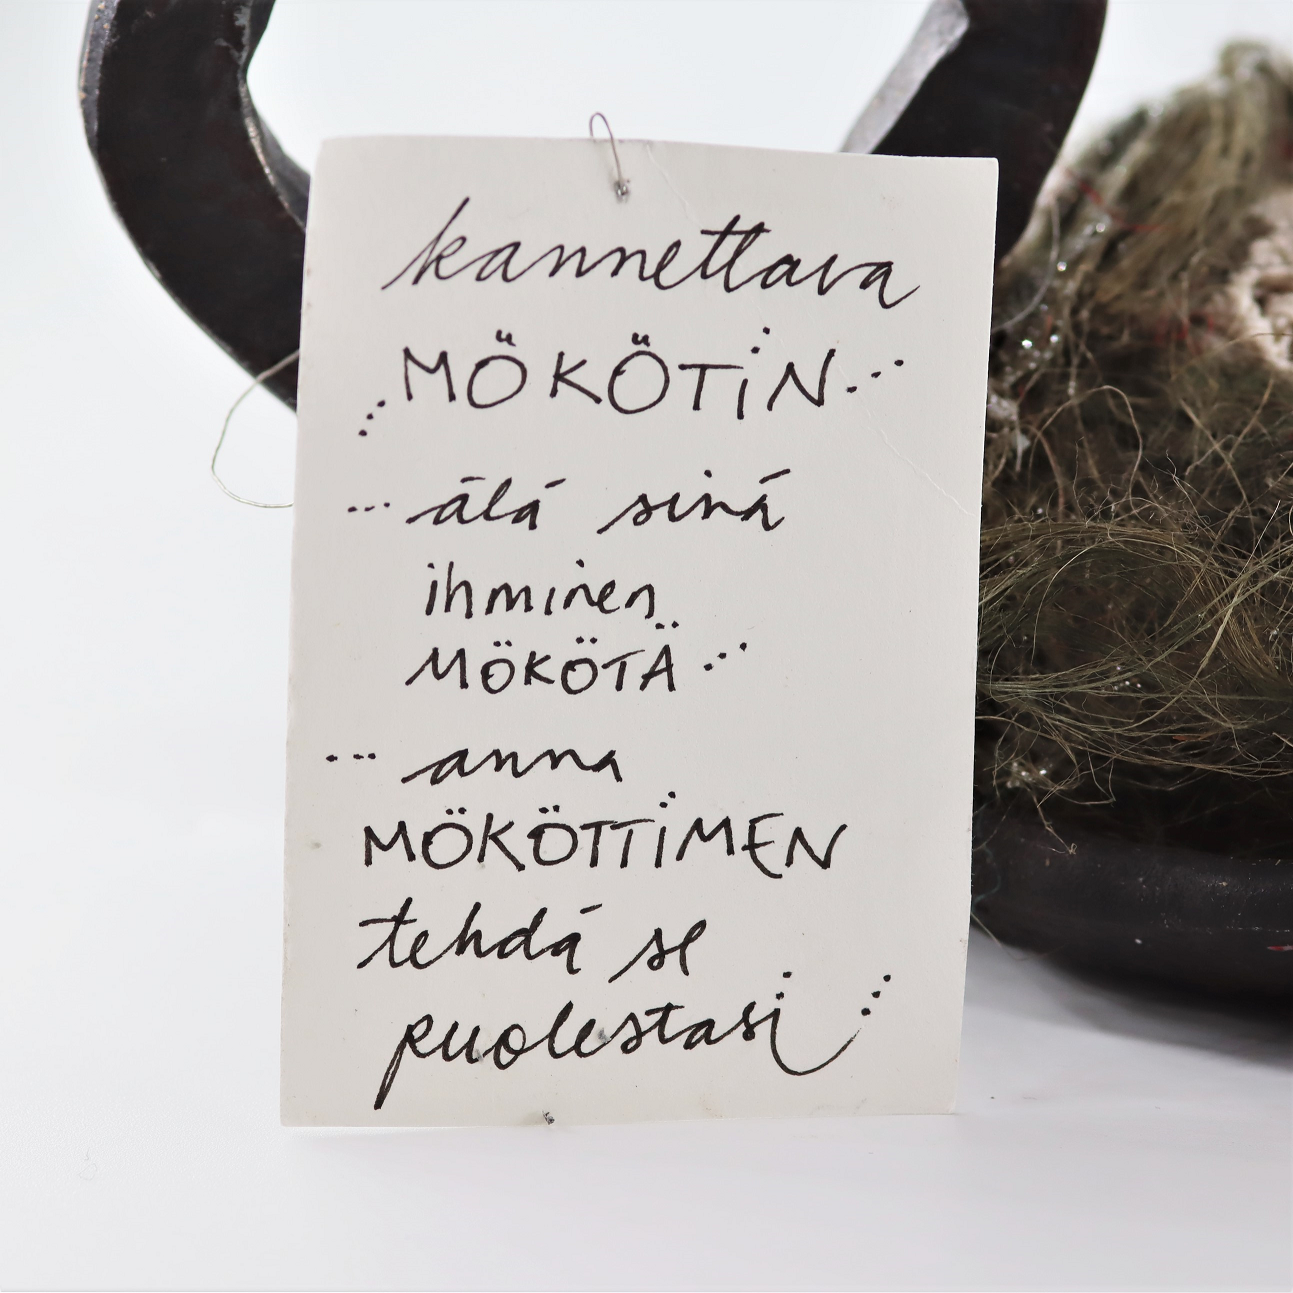 kannettava
...MÖKÖTiN...
... älä sinä
ihminen
MÖKÖTÄ...
... anna
MÖKÖTTiMEN
tehdä se
puolestasi...